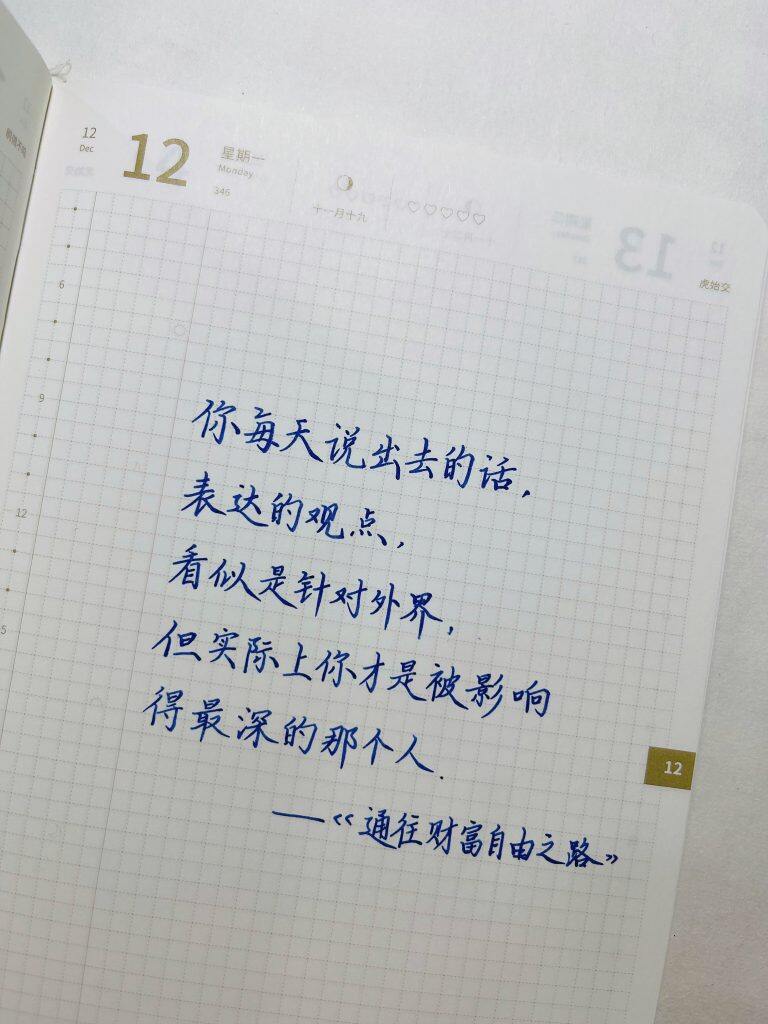 12
Dec
12
星期一
Monday
346
十一月十九
虎始交
6
9
12
5
你每天说出去的话,
表达的观点,
看似是针对外界,
但实际上你才是被影响
得最深的那个人.
——《通往财富自由之路》
12